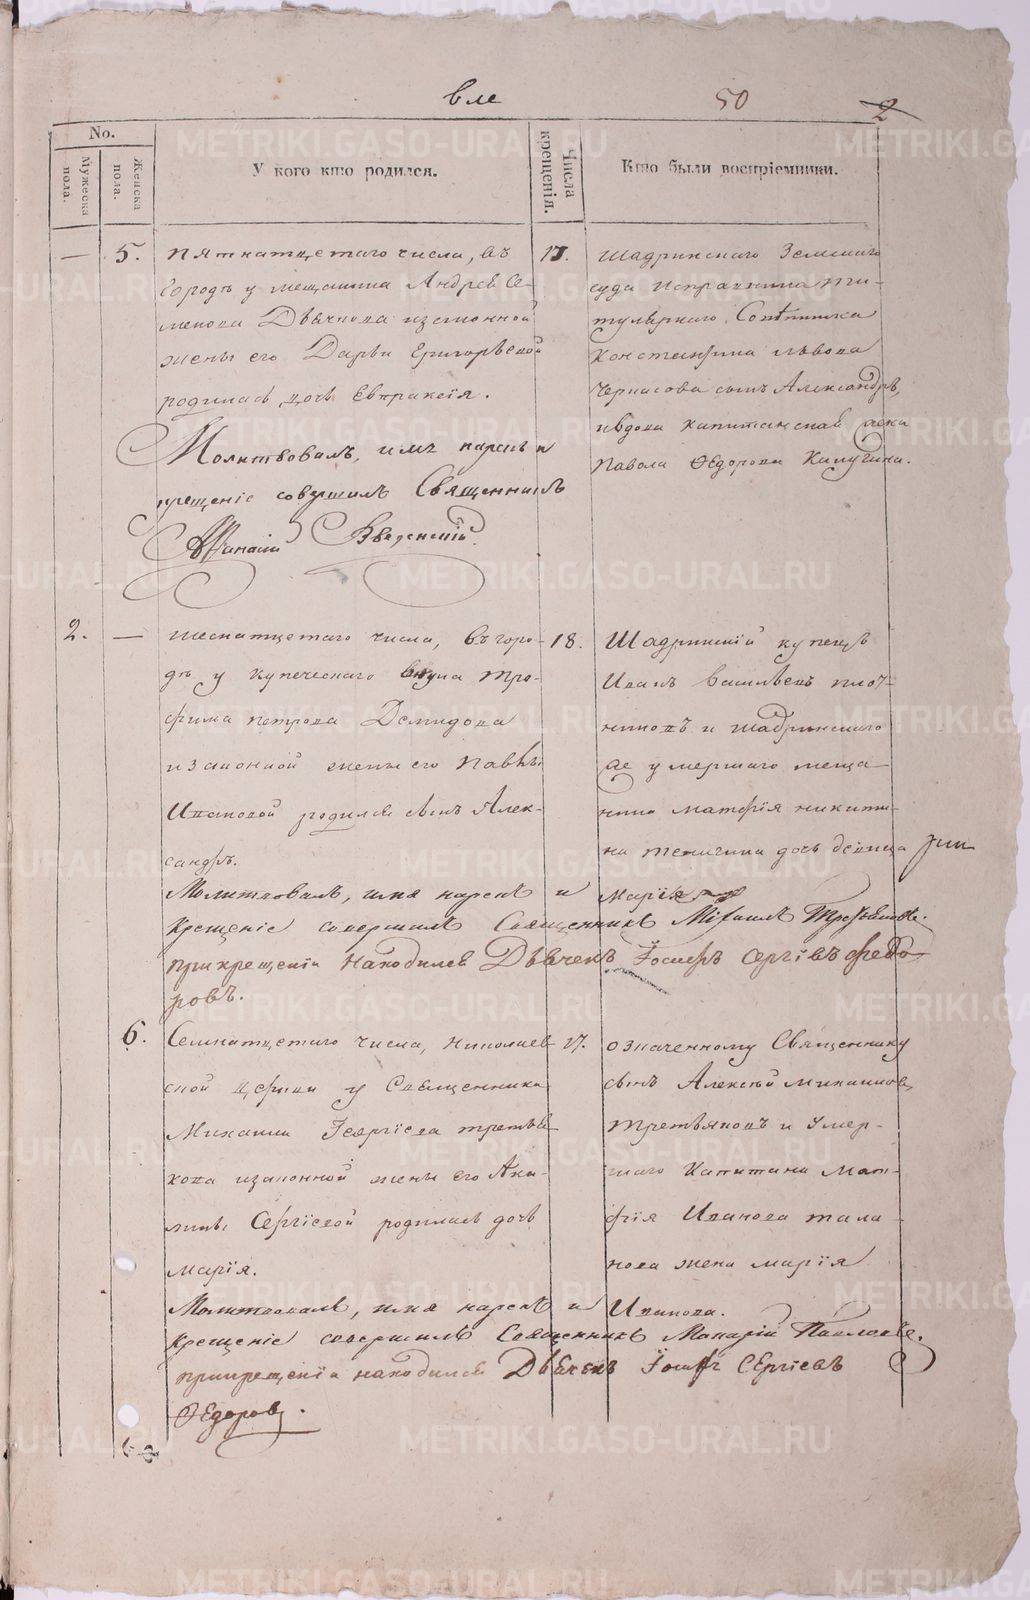 вле 50 2
No.
Мужеска пола.
Женска пола.
У кого кто родился.
Числа крещенія.
Кто были воспріемники.
— 5. пятнатцетаго числа, въ
городѣ у мещанина Андрея Се-
менова Дьячкова изаконной
жены его Дарьи Григорьевой
родилась дочь Евпраксія.
Молитвовалъ, имя нарекъ и
крещеніе совершилъ Священникъ
Афанасій Введенскій.
17. Шадринскаго Земскаго
суда исправника ти-
тулярнаго Совѣтника
Константина Львова
Черкасова сынъ Александръ,
и вдова капитанская
Павола Ѳедорова Калугина.
2. — шеснатцетаго числа, въ горо-
дѣ у купеческаго внука Тро-
фима Петрова Демидова
изаконной жены его Павлы
Ивановой родился сынъ Алек-
сандръ.
Молитвовалъ, имя нарекъ и
крещеніе совершилъ Священникъ Михаилъ Третьяковъ.
при крещеніи находился Дьячекъ Іосифъ Сергіевъ Федо-
ровъ.
18. Шадринскій купецъ
Иванъ Васильевъ плот-
никовъ и шадринскаго
же умершаго меща-
нина Матфія Никити-
на дочь девица
Марія
6. Семнатцетаго числа, Николаев-
ской церкви у Священника
Михаила Георгіева Третья-
кова изаконной жены его Аки-
лины Сергіевой родилась дочь
Марія.
Молитвовалъ, имя нарекъ и
крещеніе совершилъ Священникъ Макарій Павловъ.
при крещеніи находился Дьячекъ Іосифъ Сергіевъ
Ѳедоровъ.
17. означенному Священнику
сынъ Алексѣй Михаиловъ
Третьяковъ и умер-
шаго Капитана Мат-
фія Иванова Тала-
нова жена Марія
Иванова.
METRIKI.GASO-URAL.RU